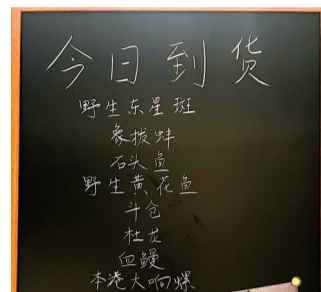 今日到货
野生东星斑
象拔蚌
石头鱼
野生黄花鱼
斗仓
杜龙
血鳗
本港大响螺